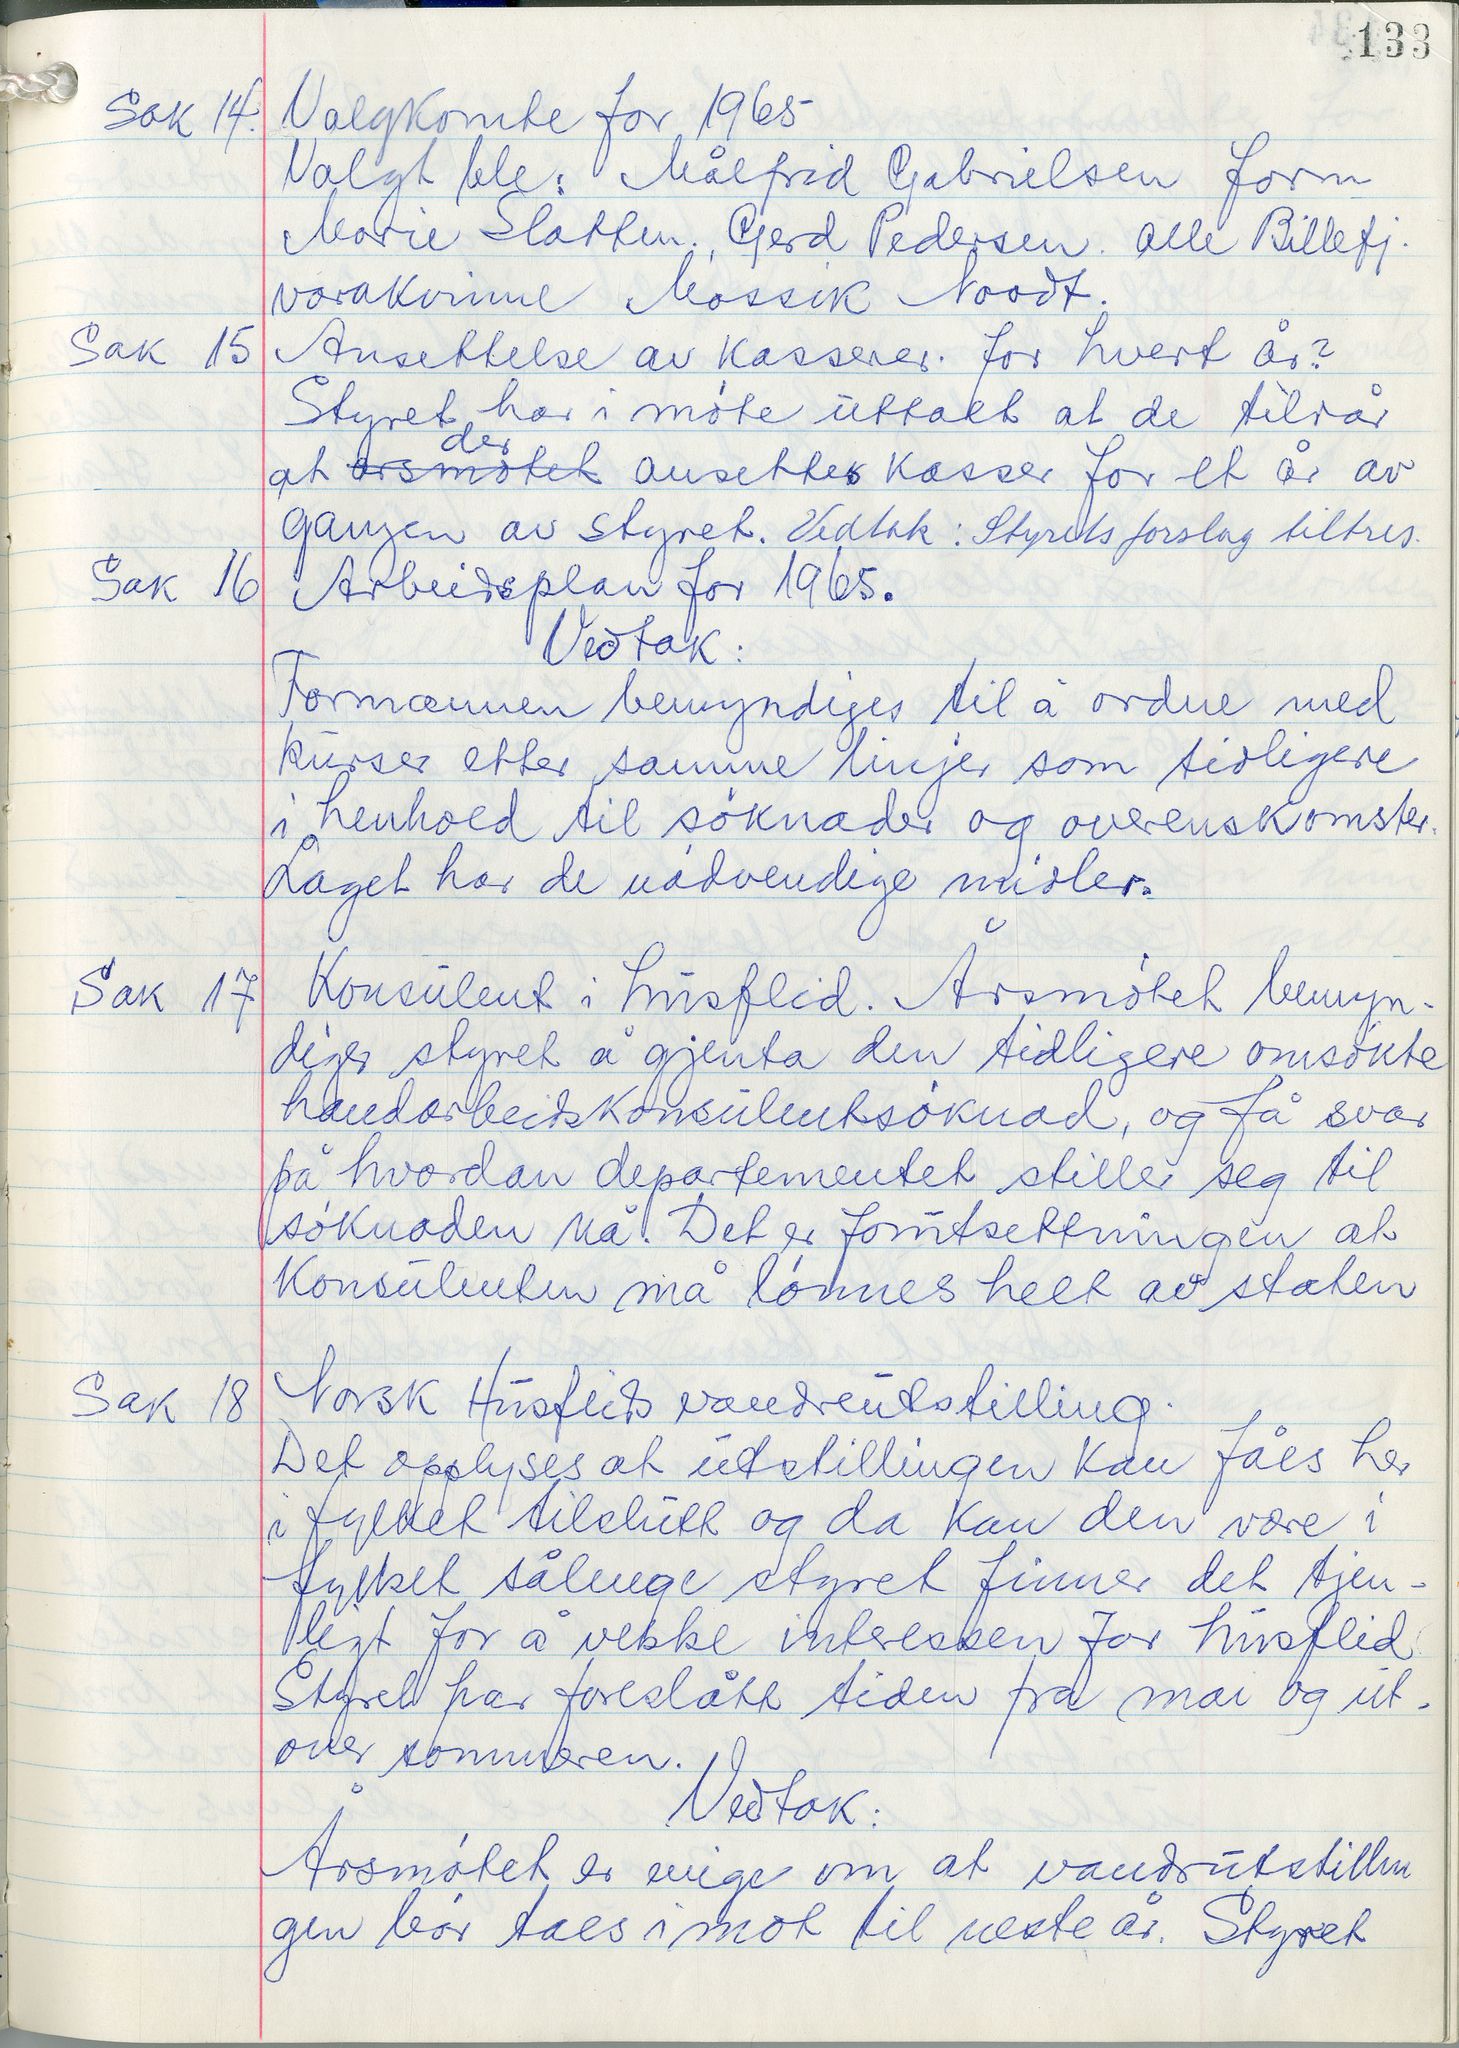 133
Sak 14. Valgkomite for 1965
Valgt ble: Målfrid Gabrielsen form
Marie Slotten. Gerd Pedersen. alle Billefj.
varakvinne Mossik Noodt.
Sak 15 Ansettelse av kasserer. for hvert år?
Styret har i møte uttalt at de tilrår
at årsmøtet der ansettes kasser for et år av
gangen av styret. Vedtak: Styrets forslag tiltres.
Sak 16 Arbeidsplan for 1965.
Vedtak:
Formannen bemyndiges til å ordne med
kurser etter samme linjer som tidligere
i henhold til søknader og overenskomster.
Laget har de nødvendige midler.
Sak 17 Konsulent i husflid. Årsmøtet bemyn-
diger styret å gjenta den tidligere omsøkte
handarbeidskonsulentsøknad, og få svar
på hvordan departementet stiller seg til
søknaden nå. Det er forutsettningen at
Konsulenten må lønnes helt av staten
Sak 18 Norsk Husflids vandreutstilling.
Det opplyses at utstillingen kan fåes her
i fylket tilslutt og da kan den være i
fylket sålenge styret finner det tjen-
ligt for å vekke interessen for husflid
Styret har foreslått tiden fra mai og ut-
over sommeren.
Vedtak:
Årsmøtet er enige om at vandrutstillin
gen bør taes imot til neste år. Styret